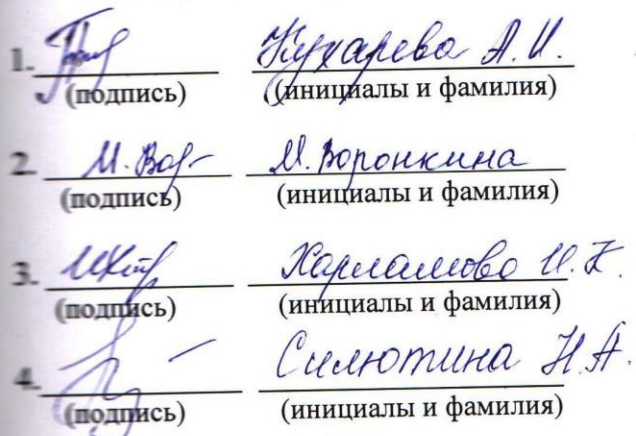 1. Кухарева А.И.
(подпись) (инициалы и фамилия)
2. М. Вор М. Воронкина
(подпись) (инициалы и фамилия)
3. Харламова И.К.
(подпись) (инициалы и фамилия)
4. Силютина Н.А.
(подпись) (инициалы и фамилия)